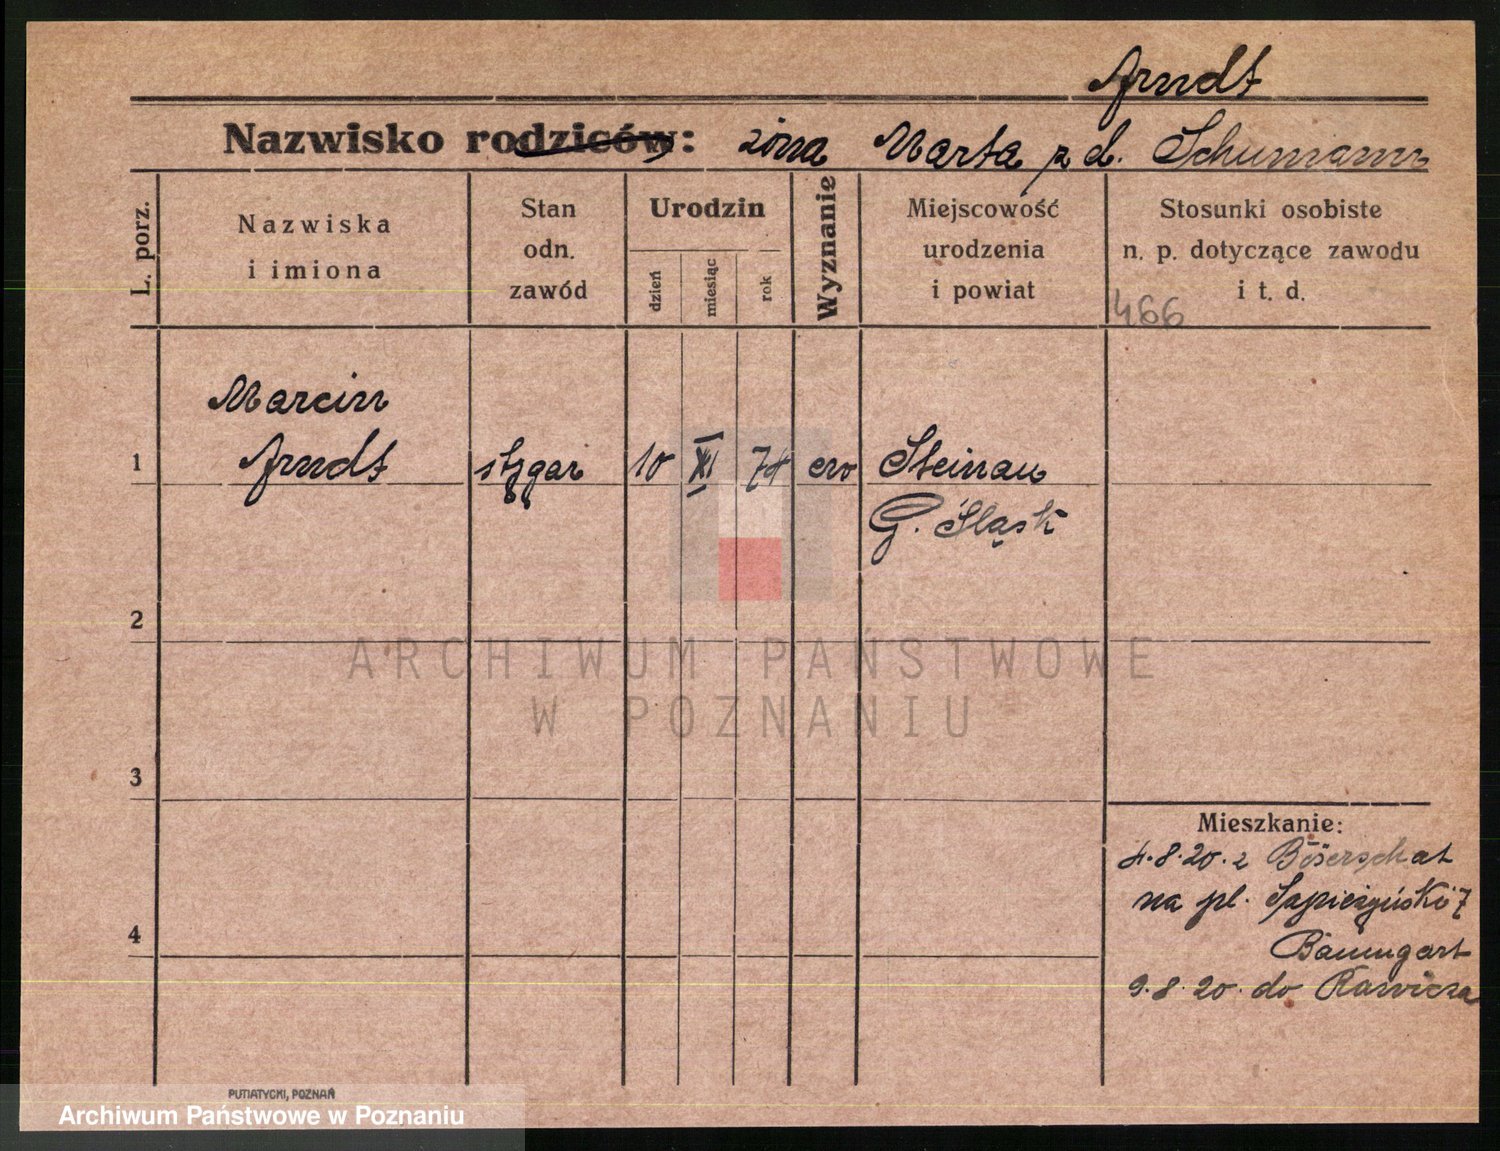 Arndt
Nazwisko rodziców: żona Marta z d. Schumann
L. porz.
Nazwiska
i imiona
Stan
odn.
zawód
Urodzin
dzień
miesiąc
rok
Wyznanie
Miejscowość
urodzenia
i powiat
Stosunki osobiste
n. p. dotyczące zawodu
i t. d.
466
Marcin
1 Arndt sztygar 10 XI 74 ew Steinau
G. Śląsk
2
ARCHIWUM PAŃSTWOWE
W POZNANIU
3
Mieszkanie:
4.8.20. z
na pl. Sapieżyński 7
4
Baumgart
9.8.20. do Rawicza
PUTIATYCKI, POZNAŃ
Archiwum Państwowe w Poznaniu